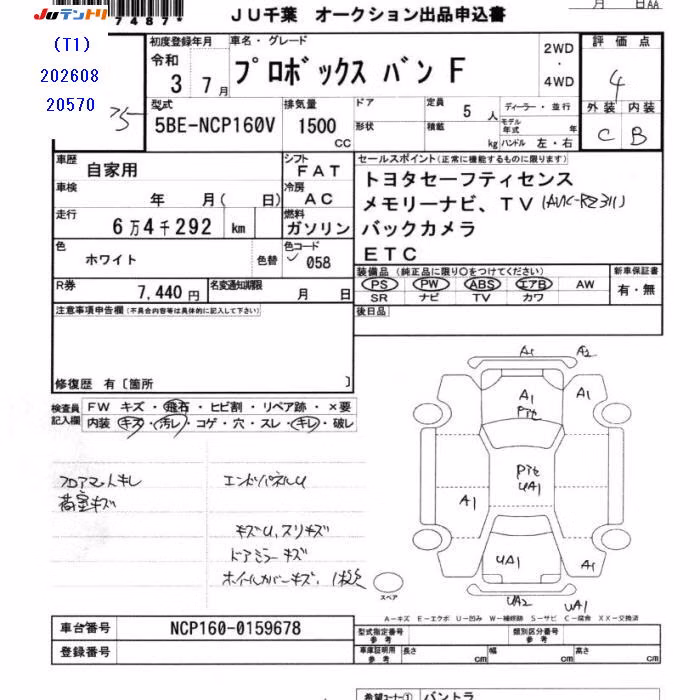 JUテントリ
7487*
JU千葉 オークション出品申込書
月 日AA
(T1)
202608
20570
初度登録年月
令和
3 7月
車名・グレード
プロボックス バン F
2WD
・
4WD
評価点
4
外装 内装
C B
型式
5BE-NCP160V
排気量
1500 CC
ドア
形状
定員 5 人
積載 kg
ディーラー・並行
モデル年式 年
ハンドル 左・右
車歴 自家用
シフト FAT
車検 年 月( 日)
冷房 AC
走行 6万4千292 km
燃料 ガソリン
色 ホワイト 色替
色コード 058
R券 7,440円
名変通知期限 月 日
セールスポイント(正常に機能するものに限ります)
トヨタセーフティセンス
メモリーナビ、TV (AVIC-RZ311)
バックカメラ
ETC
装備品 (純正品に限り○をつけてください)
PS PW ABS エアB AW
SR ナビ TV カワ
新車保証書
有・無
注意事項申告欄(不具合内容等は具体的に記入して下さい)
後日品
修復歴 有〔箇所 〕
検査員記入欄
FW キズ・飛石・ヒビ割・リペア跡・×要
内装 キズ・汚レ・コゲ・穴・スレ・キレ・破レ
フロアマットキレ
荷室キズ
エンドパネルU
キズU、スリキズ
ドアミラーキズ
ホイールカバーキズ、1枚欠
A1 A2
A1 A1
Pite
Pite
UA1
A1
UA1 A1
UA2 UA1
スペア
A-キズ E-エクボ U-凹み W-補修跡 S-サビ C-腐食 XX-交換済
車台番号 NCP160-0159678
登録番号
型式指定番号 参考
類別区分番号 参考
車庫証明用 参考 長さ cm 幅 cm 高さ cm
希望コーナー① バントラ